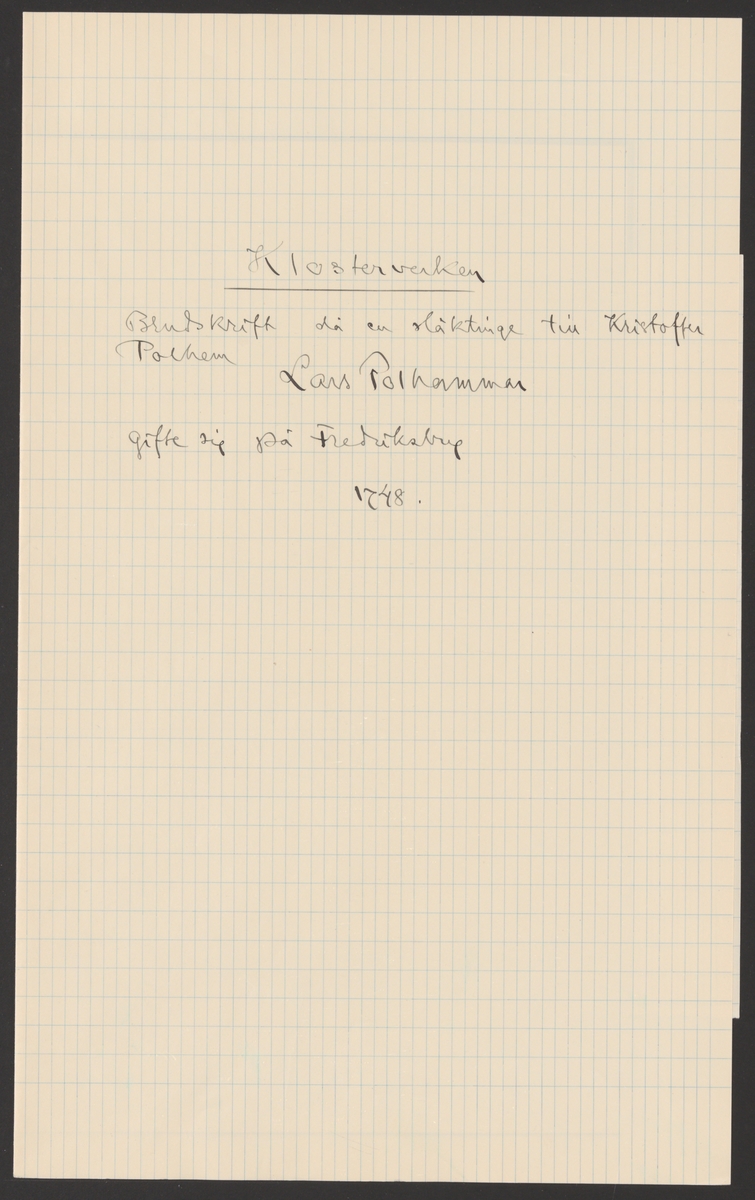 Klosterverken
Brudskrift då en släktinge till Kristoffer
Polhem
Lars Polhammar
gifte sig på Fredriksberg
1748.